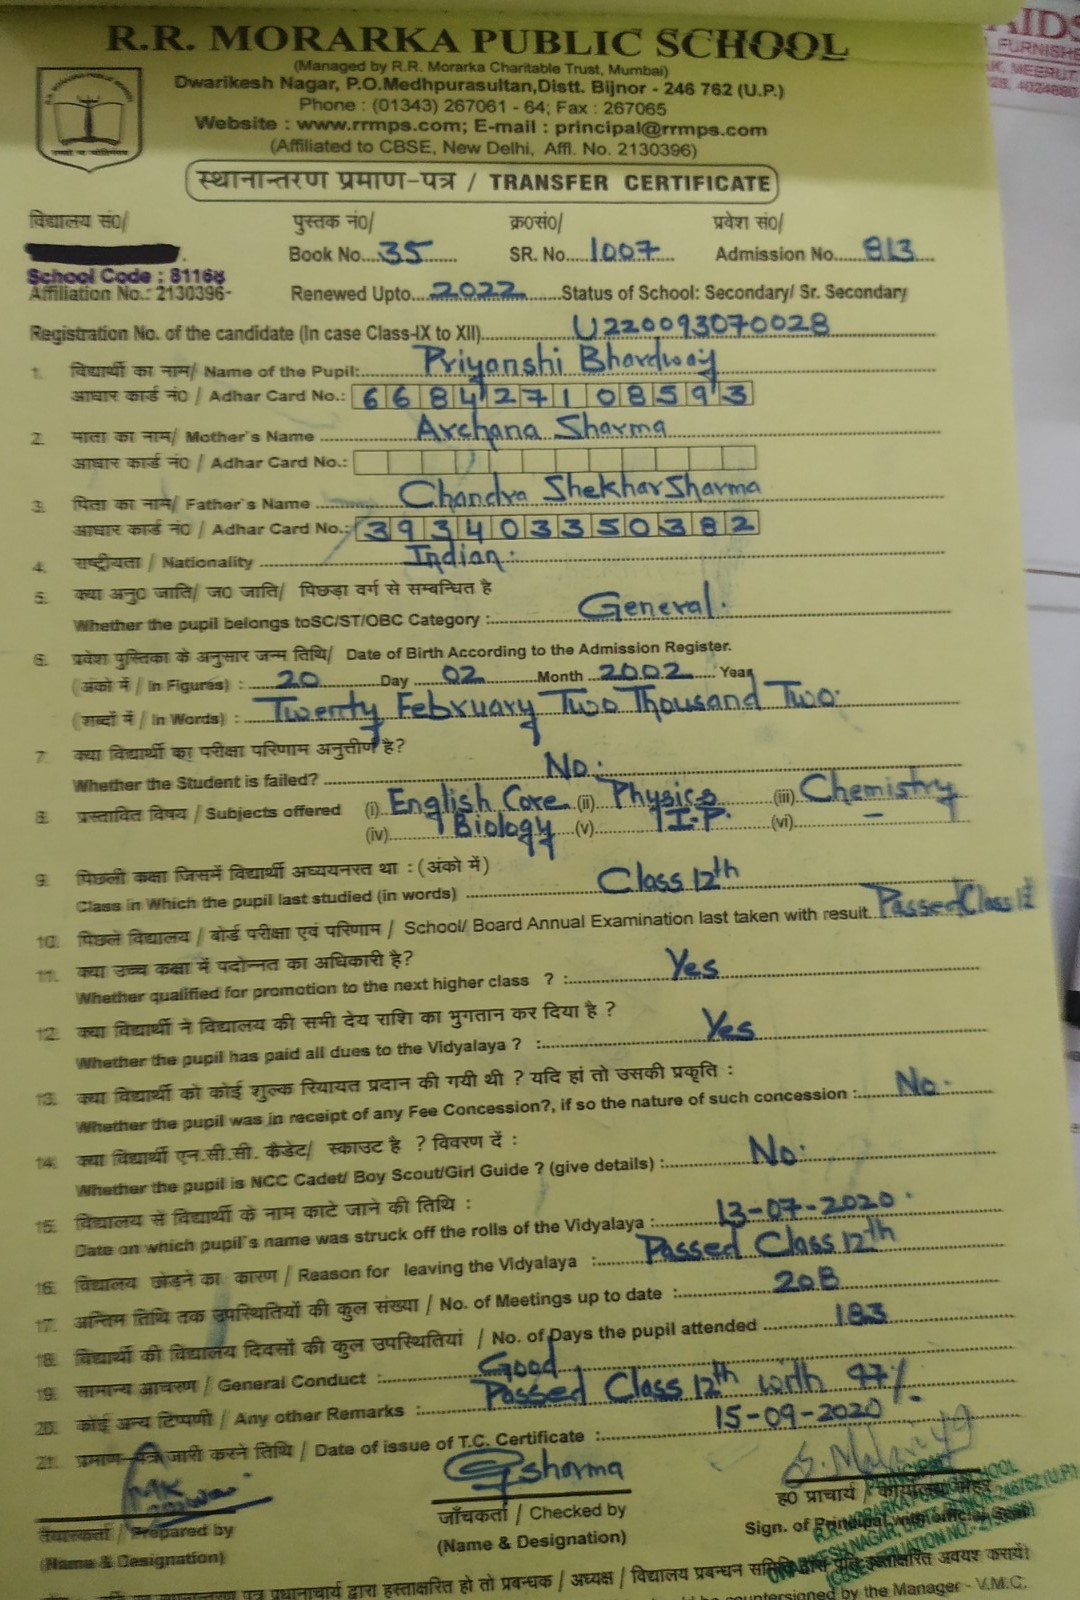 R.R. MORARKA PUBLIC SCHOOL
(Managed by R.R. Morarka Charitable Trust, Mumbai)
Dwarikesh Nagar, P.O.Medhpurasultan,Distt. Bijnor - 246 762 (U.P.)
Phone : (01343) 267061 - 64; Fax : 267065
Website : www.rrmps.com; E-mail : principal@rrmps.com
(Affiliated to CBSE, New Delhi, Affl. No. 2130396)
स्थानान्तरण प्रमाण-पत्र / TRANSFER CERTIFICATE
विद्यालय सं०/ पुस्तक नं०/ क्र०सं०/ प्रवेश सं०/
Book No. 35 SR. No. 1007 Admission No. 813
School Code : 81168
Affiliation No.: 2130396- Renewed Upto 2022 Status of School: Secondary/ Sr. Secondary
Registration No. of the candidate (In case Class-IX to XII) U220093070028
1. विद्यार्थी का नाम/ Name of the Pupil: Priyanshi Bhardwaj
आधार कार्ड नं० / Adhar Card No.: 668427108593
2. माता का नाम/ Mother's Name Archana Sharma
आधार कार्ड नं० / Adhar Card No.:
3. पिता का नाम/ Father's Name Chandra Shekhar Sharma
आधार कार्ड नं० / Adhar Card No.: 393403350382
4. राष्ट्रीयता / Nationality Indian.
5. क्या अनु० जाति/ ज० जाति/ पिछड़ा वर्ग से सम्बन्धित है
Whether the pupil belongs toSC/ST/OBC Category : General.
6. प्रवेश पुस्तिका के अनुसार जन्म तिथि/ Date of Birth According to the Admission Register.
(अंको में / In Figures) : 20 Day 02 Month 2002 Year
(शब्दों में / In Words) : Twenty February Two Thousand Two.
7. क्या विद्यार्थी का परीक्षा परिणाम अनुत्तीर्ण है?
Whether the Student is failed? No.
8. प्रस्तावित विषय / Subjects offered (i) English Core (ii) Physics (iii) Chemistry
(iv) Biology (v) I.P. (vi) –
9. पिछली कक्षा जिसमें विद्यार्थी अध्ययनरत था : (अंको में)
Class in Which the pupil last studied (in words) Class 12th
10. पिछले विद्यालय / बोर्ड परीक्षा एवं परिणाम / School/ Board Annual Examination last taken with result Passed Class 12
11. क्या उच्च कक्षा में पदोन्नत का अधिकारी है?
Whether qualified for promotion to the next higher class ? : Yes
12. क्या विद्यार्थी ने विद्यालय की सभी देय राशि का भुगतान कर दिया है ?
Whether the pupil has paid all dues to the Vidyalaya ? : Yes
13. क्या विद्यार्थी को कोई शुल्क रियायत प्रदान की गयी थी ? यदि हां तो उसकी प्रकृति :
Whether the pupil was in receipt of any Fee Concession?, if so the nature of such concession : No.
14. क्या विद्यार्थी एन.सी.सी. कैडेट/ स्काउट है ? विवरण दें :
Whether the pupil is NCC Cadet/ Boy Scout/Girl Guide ? (give details) : No.
15. विद्यालय से विद्यार्थी के नाम काटे जाने की तिथि :
Date on which pupil's name was struck off the rolls of the Vidyalaya : 13-07-2020.
16. विद्यालय छोड़ने का कारण / Reason for leaving the Vidyalaya : Passed Class 12th
17. अन्तिम तिथि तक उपस्थितियों की कुल संख्या / No. of Meetings up to date : 208
18. विद्यार्थी की विद्यालय दिवसों की कुल उपस्थितियां / No. of Days the pupil attended 183
19. सामान्य आचरण / General Conduct : Good
20. कोई अन्य टिप्पणी / Any other Remarks : Passed Class 12th with 97%.
21. प्रमाण-पत्र जारी करने तिथि / Date of issue of T.C. Certificate : 15-09-2020
Gsharma
तैयारकर्ता / Prepared by जाँचकर्ता / Checked by ह० प्राचार्य / कार्यालय मोहर
(Name & Designation) (Name & Designation) Sign. of Principal with official Seal
PRINCIPAL
R.R. MORARKA PUBLIC SCHOOL
DWARIKESH NAGAR, DISTT. BIJNOR-246762 (U.P.)
(CBSE AFFILIATION NO.-2130396)
पत्र प्रधानाचार्य द्वारा हस्ताक्षरित हो तो प्रबन्धक / अध्यक्ष / विद्यालय प्रबन्धन समिति द्वारा हस्ताक्षरित अवश्य करायें।
countersigned by the Manager - V.M.C.
AIDS
FURNISHE
MEERUT
28, 4024880